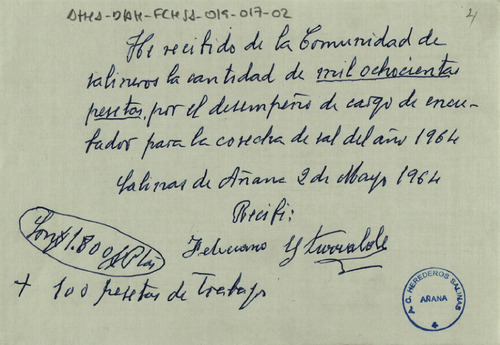 DHHA-DAH-FCHSS-019-017-02
4
He recibido de la Comunidad de
salineros la cantidad de mil ochocientas
pesetas, por el desempeño de cargo de encu-
bador para la cosecha de sal del año 1964
Salinas de Añana 2 de Mayo 1964
Recibi:
Feliciano
Son # 1.800 # Ptas
+ 100 pesetas de Trabajo
A. C. HEREDEROS SALINAS
AÑANA